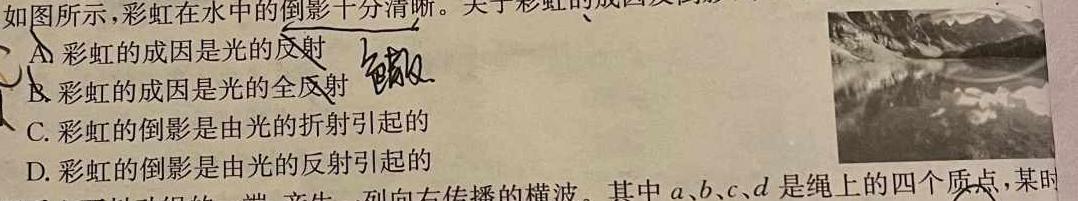 如图所示,彩虹在水中的倒影十分清晰。关于彩虹的成因及倒影
A. 彩虹的成因是光的反射
B. 彩虹的成因是光的全反射
色散
C. 彩虹的倒影是由光的折射引起的
D. 彩虹的倒影是由光的反射引起的
列向右传播的横波。其中 a、b、c、d 是绳上的四个质点,某时